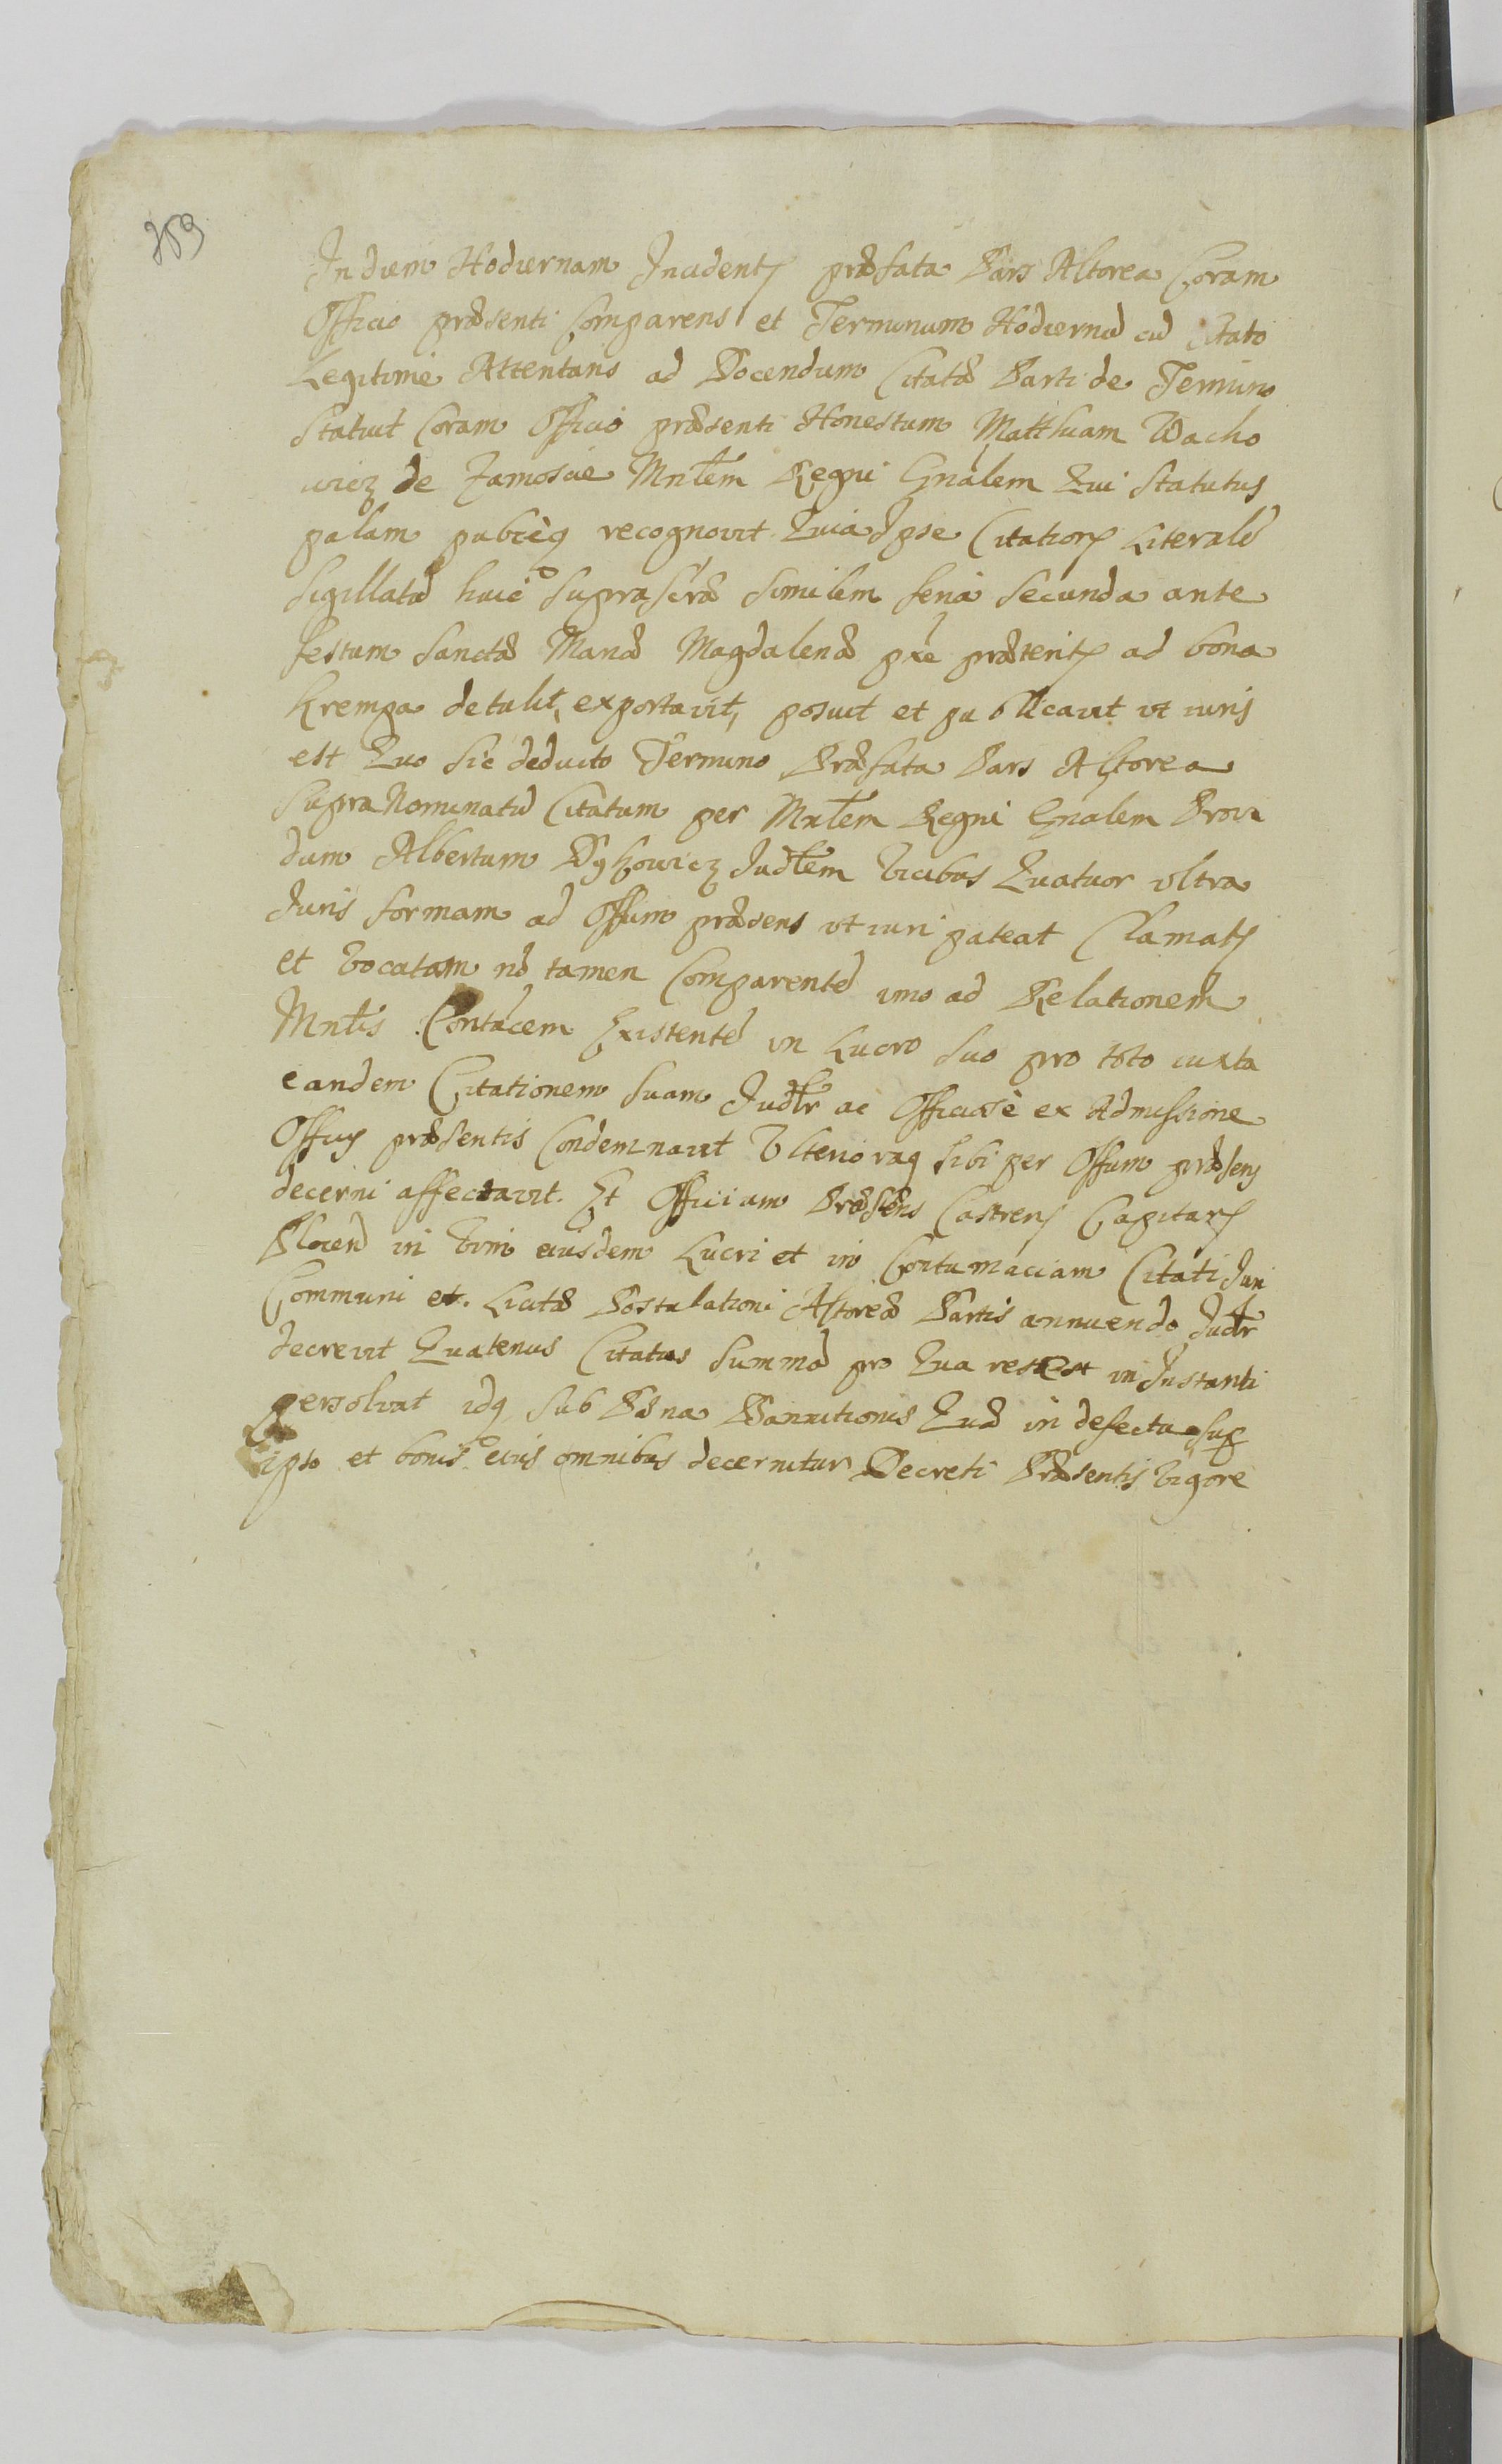 In diem Hodiernam Incident præfata Pars Actorea Coram
Officio præsenti Comparens et Terminum Hodiernū cū citato
Legitime Attentans ad Docendum Citatæ Parti de Termino
Statuit Coram Officio præsenti Honestum Matthiam Wacho
wicz de Zamoscie Mnlem Regni Gnalem Qui Statutus
palam publceq recognovit Quia Ipse Citationē Literalē
Sigillatā huic suprascræ similem feria secunda ante
festum Sanctæ Mariæ Magdalenæ pxe præterit ad bona
Krempa detulit, exportavit, posuit et publicavit ut iuris
est Quo sic deducto Termino Præfata Pars Actorea
supra Nominatū Citatum per Mnlem Regni Gnalem Provi
dum Albertum Judlem Vicibus Quatuor ultra
Juris formam ad Offum præsens ut iuri pateat Clamat
et Vocatam nō tamen Comparentē imo ad Relationem
Mnlis Contacem Existentē in Lucro suo pro toto iuxta
eandem Citationem suam Judlr ac Officiose ex Admissione
Officij præsentis Condemnavit Ulterioraq sibi per Offum præsens
decerni affectavit. Et Officium Præsens Castren Capitan
in Vim eiusdem Lucri et in Contumaciam Citati Juri
Communi et Licitæ Postulationi Actoreæ Partis annuendo Judlr
decrevit Quatenus Citatus Summā pro Qua rest est in Instanti
persolvat idq sub Pæna Bannitionis Quæ in defectu sup
ipso et bonis eius omnibus decernitur Decreti Præsentis Vigore